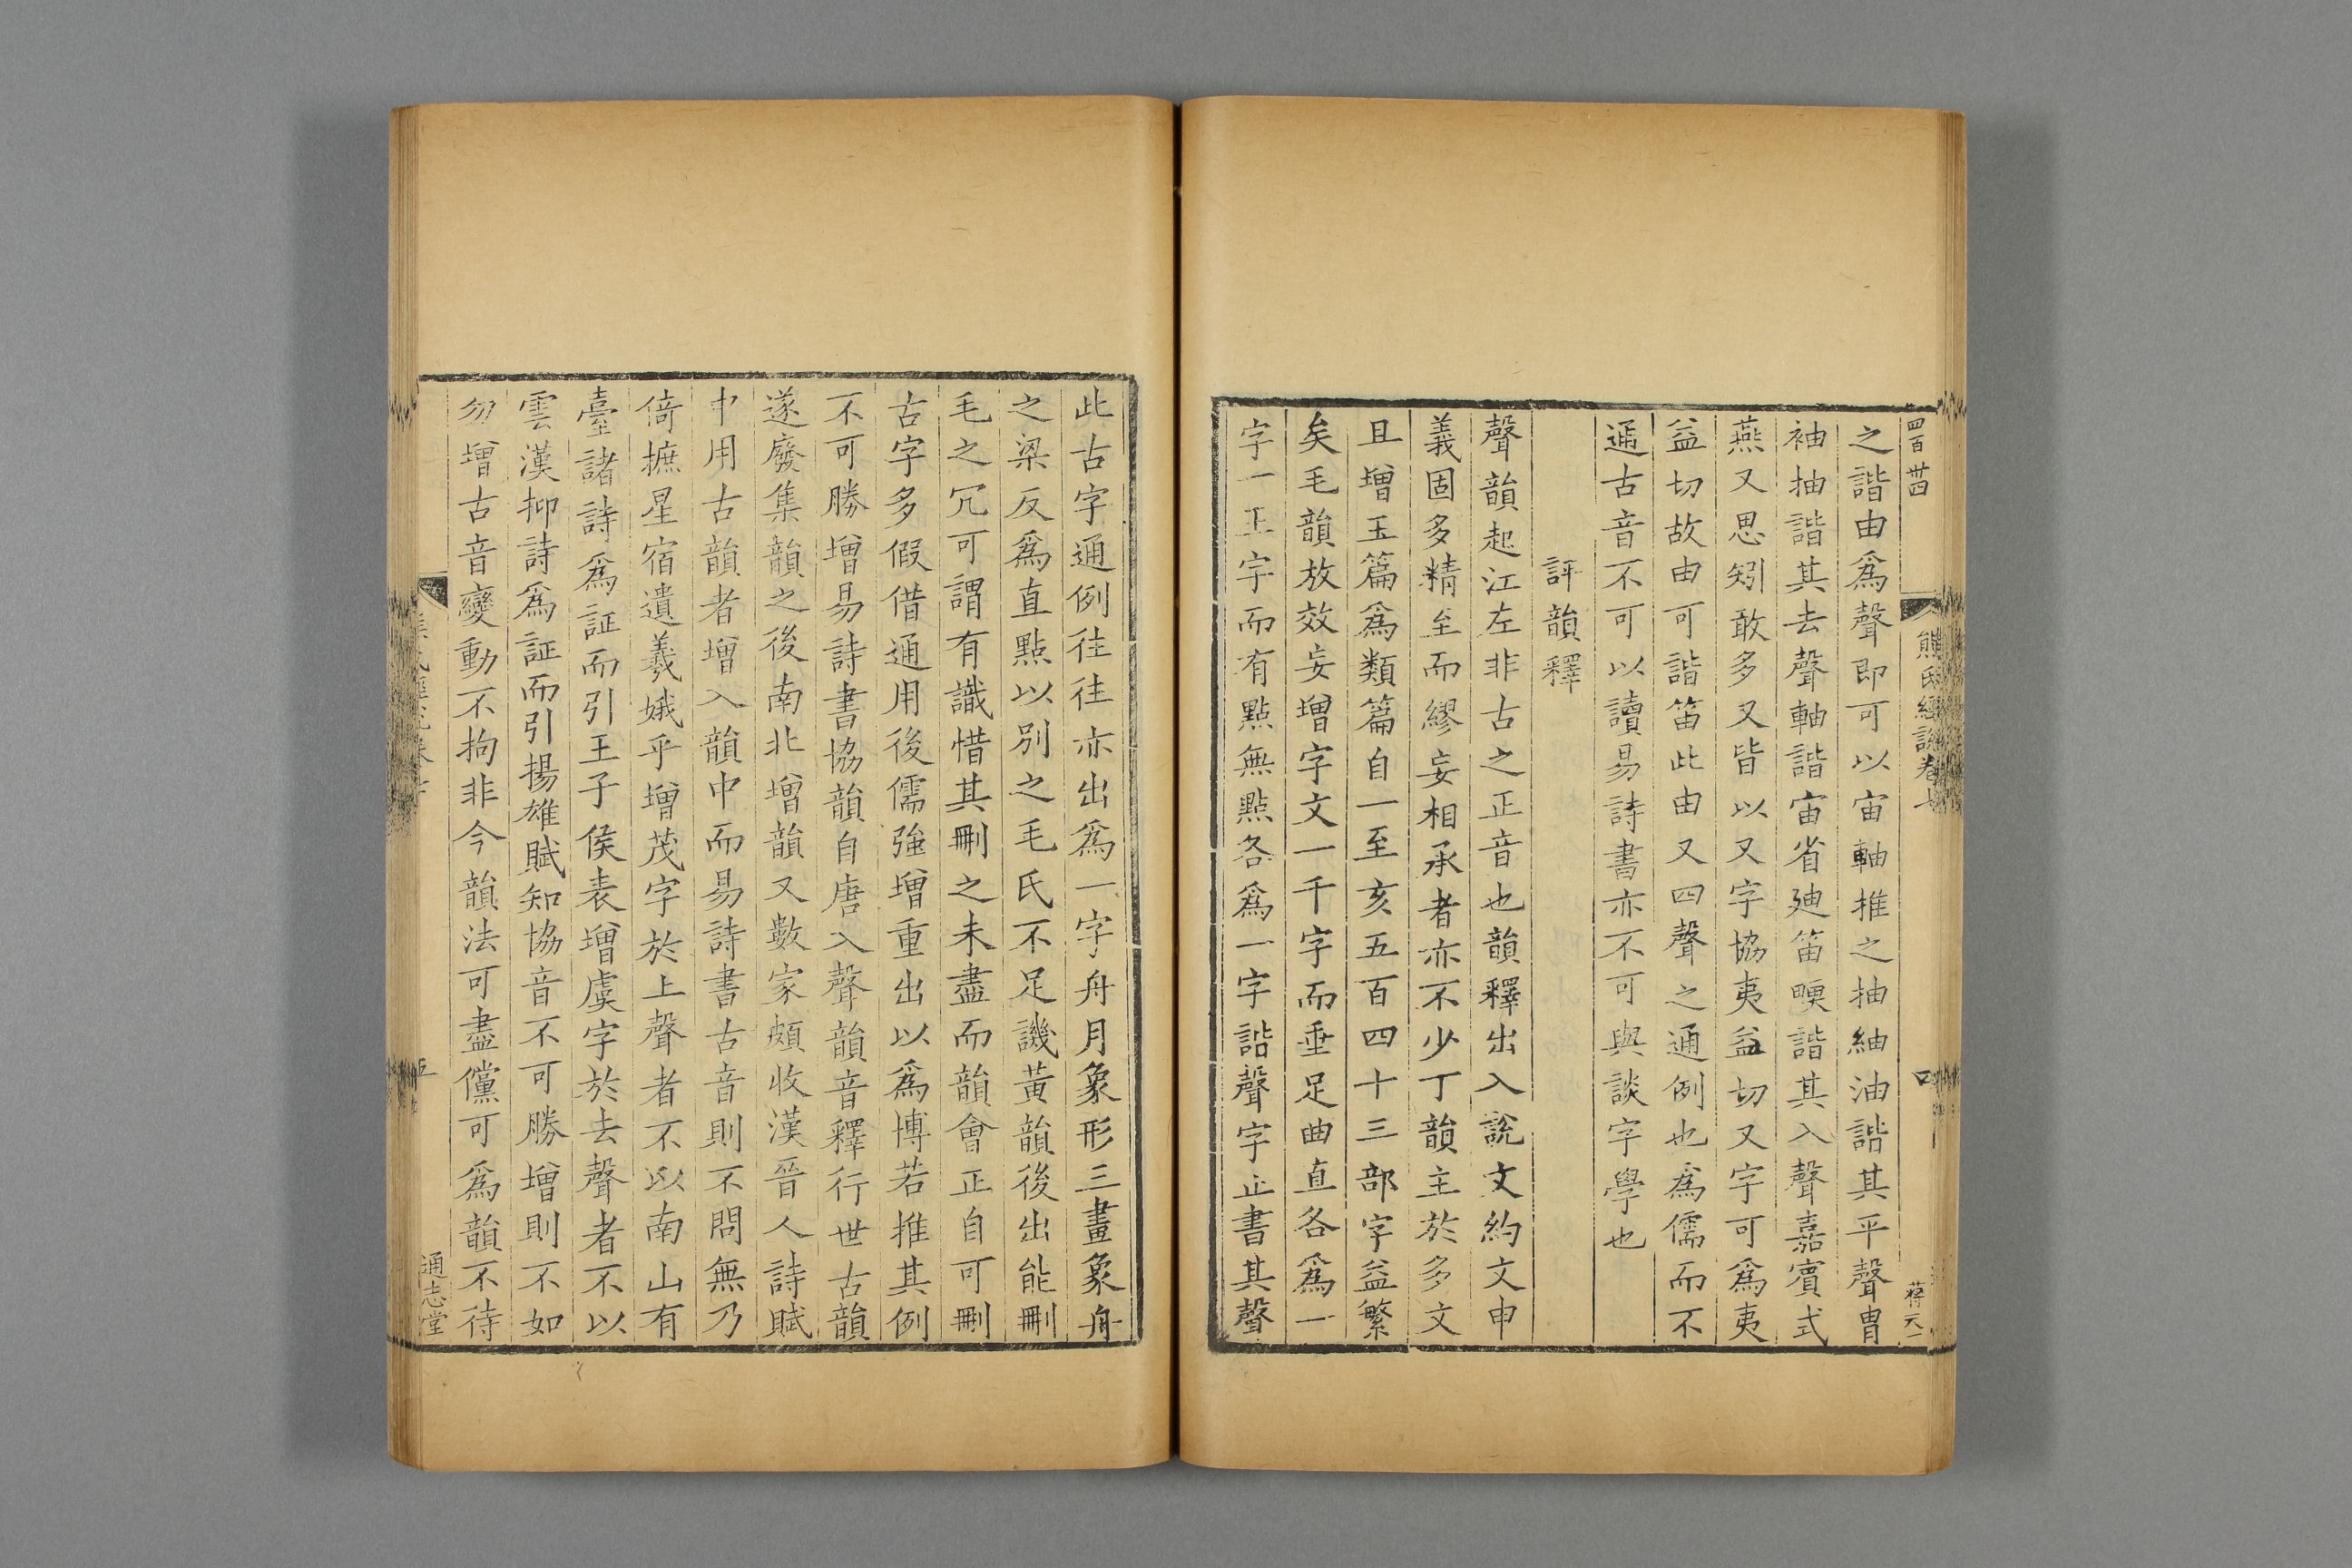 四百卅四
熊氏經說卷七
四
蔣天一
之諧由爲聲即可以宙軸推之抽紬油諧其平聲冑
袖抽諧其去聲軸諧宙省廸笛㬰諧其入聲嘉賓式
燕又思矧敢多又皆以又字協夷益切又字可爲夷
益切故由可諧笛此由又四聲之通例也爲儒而不
通古音不可以讀易詩書亦不可與談字學也
評韻釋
聲韻起江左非古之正音也韻釋出入說文約文申
義固多精至而繆妄相承者亦不少丁韻主於多文
且增玉篇爲類篇自一至亥五百四十三部字益繁
矣毛韻放效妄增字文一千字而垂足曲直各爲一
字一正字而有點無點各爲一字諧聲字止書其聲
此古字通例往往亦出爲一字舟月象形三畫象舟
之梁反爲直點以別之毛氏不足譏黃韻後出能刪
毛之冗可謂有識惜其刪之未盡而韻會正自可刪
古字多假借通用後儒強增重出以爲博若推其例
不可勝增易詩書協韻自唐入聲韻音釋行世古韻
遂廢集韻之後南北增韻又數家頗收漢晉人詩賦
中用古韻者增入韻中而易詩書古音則不問無乃
倚摭星宿遺羲娥乎增茂字於上聲者不以南山有
臺諸詩爲証而引王子侯表增虞字於去聲者不以
雲漢抑詩爲証而引揚雄賦知協音不可勝增則不如
勿增古音變動不拘非今韻法可盡儻可爲韻不待
五
通志堂